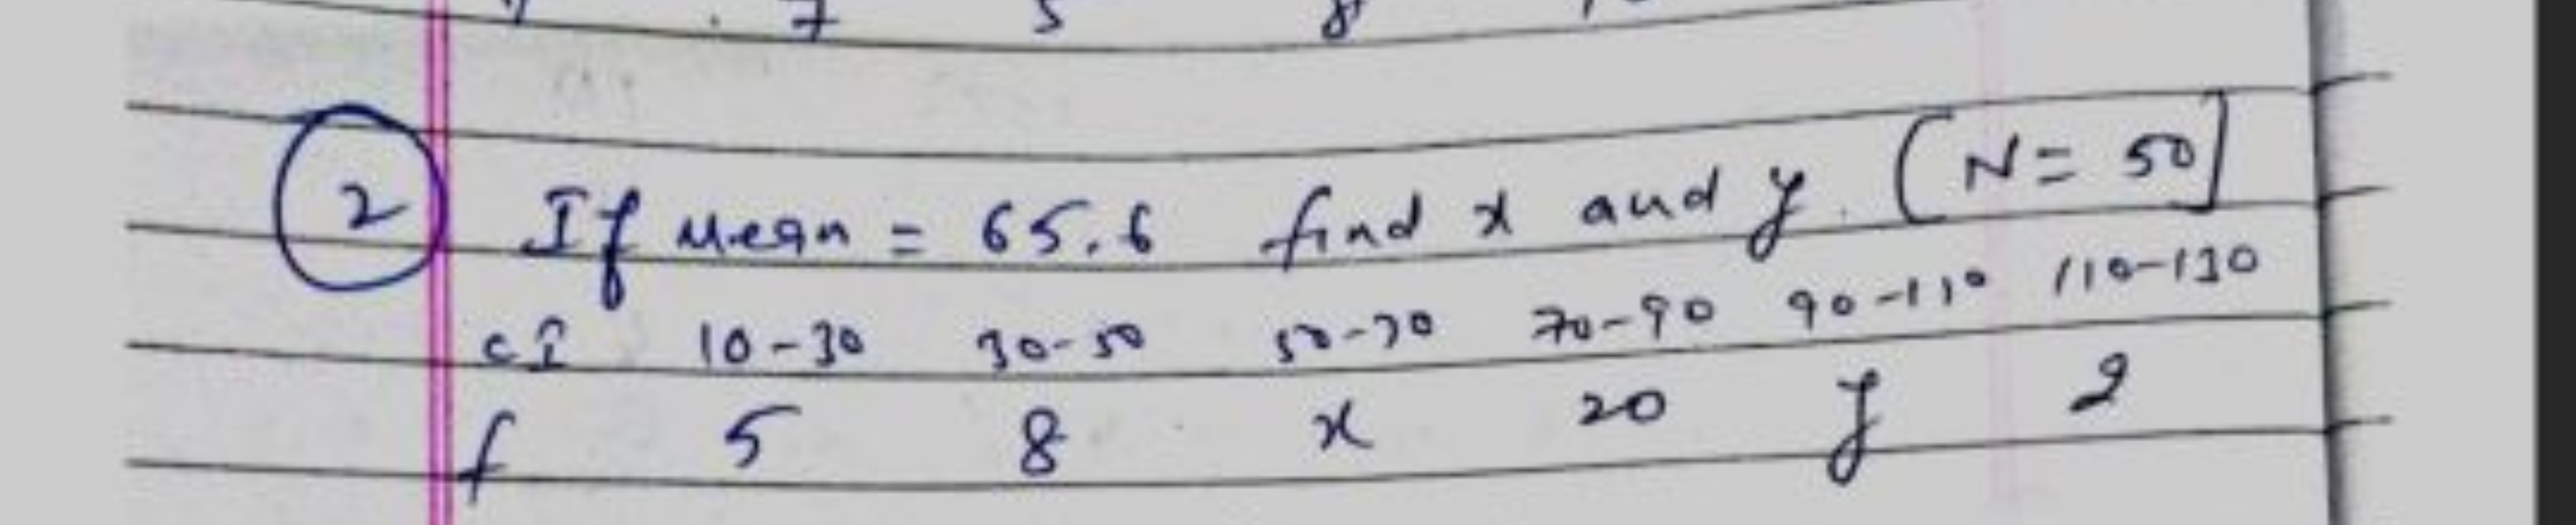 7 5 8
2 If Mean = 65.6 find x and y. [N = 50]
CI 10-30 30-50 50-70 70-90 90-110 110-130
f 5 8 x 20 y 2